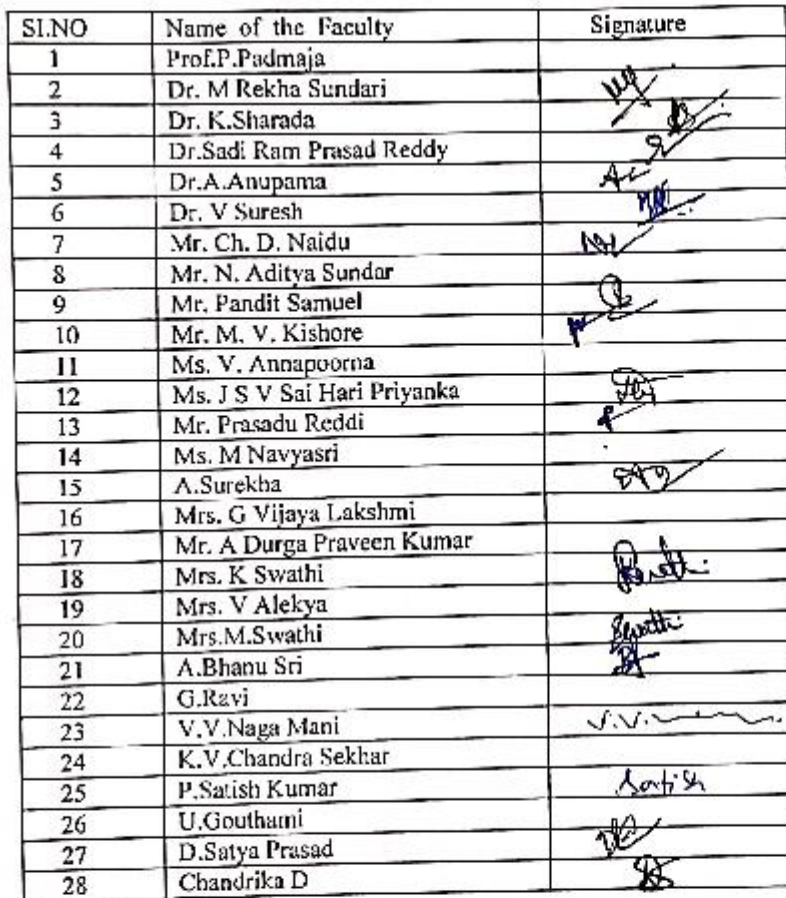 SI.NO Name of the Faculty Signature
1 Prof.P.Padmaja
2 Dr. M Rekha Sundari
3 Dr. K.Sharada
4 Dr.Sadi Ram Prasad Reddy
5 Dr.A.Anupama
6 Dr. V Suresh
7 Mr. Ch. D. Naidu
8 Mr. N. Aditya Sundar
9 Mr. Pandit Samuel
10 Mr. M. V. Kishore
11 Ms. V. Annapoorna
12 Ms. J S V Sai Hari Priyanka
13 Mr. Prasadu Reddi
14 Ms. M Navyasri
15 A.Surekha
16 Mrs. G Vijaya Lakshmi
17 Mr. A Durga Praveen Kumar
18 Mrs. K Swathi
19 Mrs. V Alekya
20 Mrs.M.Swathi Swathi
21 A.Bhanu Sri
22 G.Ravi
23 V.V.Naga Mani V.V.
24 K.V.Chandra Sekhar
25 P.Satish Kumar Satish
26 U.Gouthami
27 D.Satya Prasad
28 Chandrika D